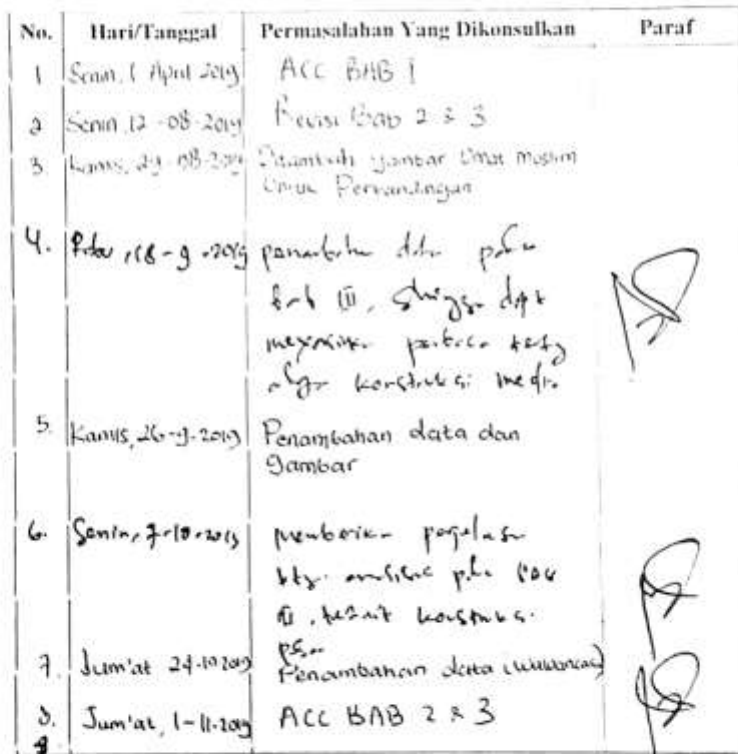 No. Hari/Tanggal Permasalahan Yang Dikonsulkan Paraf
1 Senin, 1 April 2019 ACC BAB 1
2 Senin, 12-08-2019 Revisi Bab 2 & 3
3. Kamis, 29-08-2019 Ditambah gambar Umat muslim
Untuk
4. Rabu, 18-9-2019 data pada
bab III, sehingga dapt
konstruksi media
5. Kamis, 26-9-2019 Penambahan data dan
gambar
6. Senin, 7-10-2019 memberikan penjelasan
pada bab
III, terkait konstruksi
7. Jum'at 24-10-2019 Penambahan data (wawancara)
8. Jum'at, 1-11-2019 ACC BAB 2 & 3